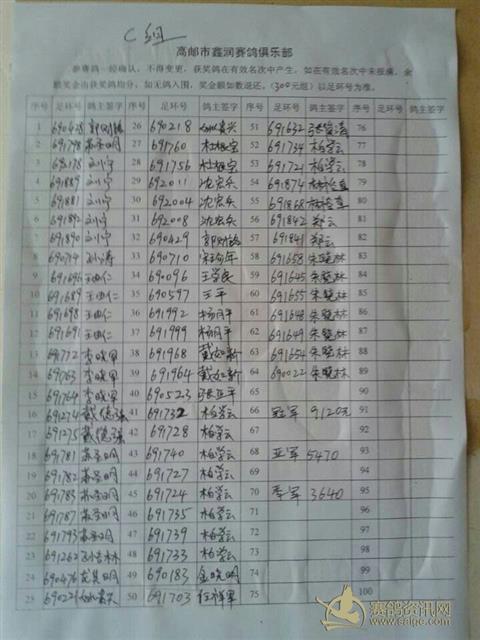 C组
高邮市鑫润赛鸽俱乐部
参赛鸽一经确认，不得变更，获奖鸽在有效名次中产生，如在有效名次中未报满，余
额奖金由获奖鸽均分，如无鸽入围，奖金全额如数退还，(300元组)以足环号为准。
序号 足环号 鸽主签字 序号 足环号 鸽主签字 序号 足环号 鸽主签字 序号 足环号 鸽主签字
1 26 690218 51 691632 76
2 691798 27 691760 杜根宝 52 691734 柏学云 77
3 刘小宁 28 691756 杜根宝 53 691721 柏学云 78
4 691889 刘小宁 29 692011 沈宏兵 54 691874 79
5 691881 刘小宁 30 692004 沈宏兵 55 691868 80
6 691892 刘小宁 31 692008 沈宏兵 56 691842 郑云 81
7 691890 刘小宁 32 690429 57 691841 郑云 82
8 33 690710 58 691658 朱晓林 83
9 34 690096 王学良 59 691645 朱晓林 84
10 691689 35 690597 王平 60 691655 朱晓林 85
11 691698 36 691992 杨同平 61 691648 朱晓林 86
12 691691 37 691999 杨同平 62 691649 朱晓林 87
13 李晓军 38 691968 戴如新 63 691654 朱晓林 88
14 李晓军 39 691964 戴如新 64 690022 朱晓林 89
15 李晓军 40 690523 张亚平 65 90
16 691274 戴德强 41 691732 柏学云 66 冠军 9120元 91
17 691275 戴德强 42 691728 柏学云 67 92
18 691781 43 691740 柏学云 68 亚军 5470 93
19 691782 44 691727 柏学云 69 94
20 691785 45 691724 柏学云 70 季军 3640 95
21 691787 46 691735 柏学云 71 96
22 691793 47 691739 柏学云 72 97
23 691262 48 691733 柏学云 73 98
24 690476 49 690183 金晓明 74 99
25 50 691703 任祥军 75 100
赛鸽资讯网
www.saige.com